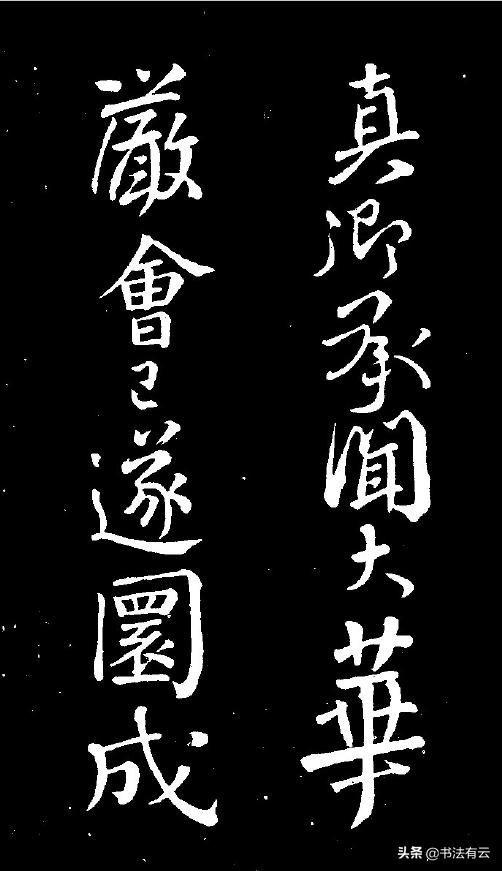 真卿承聞大華
嚴會已遂圓成
头条 @书法有云